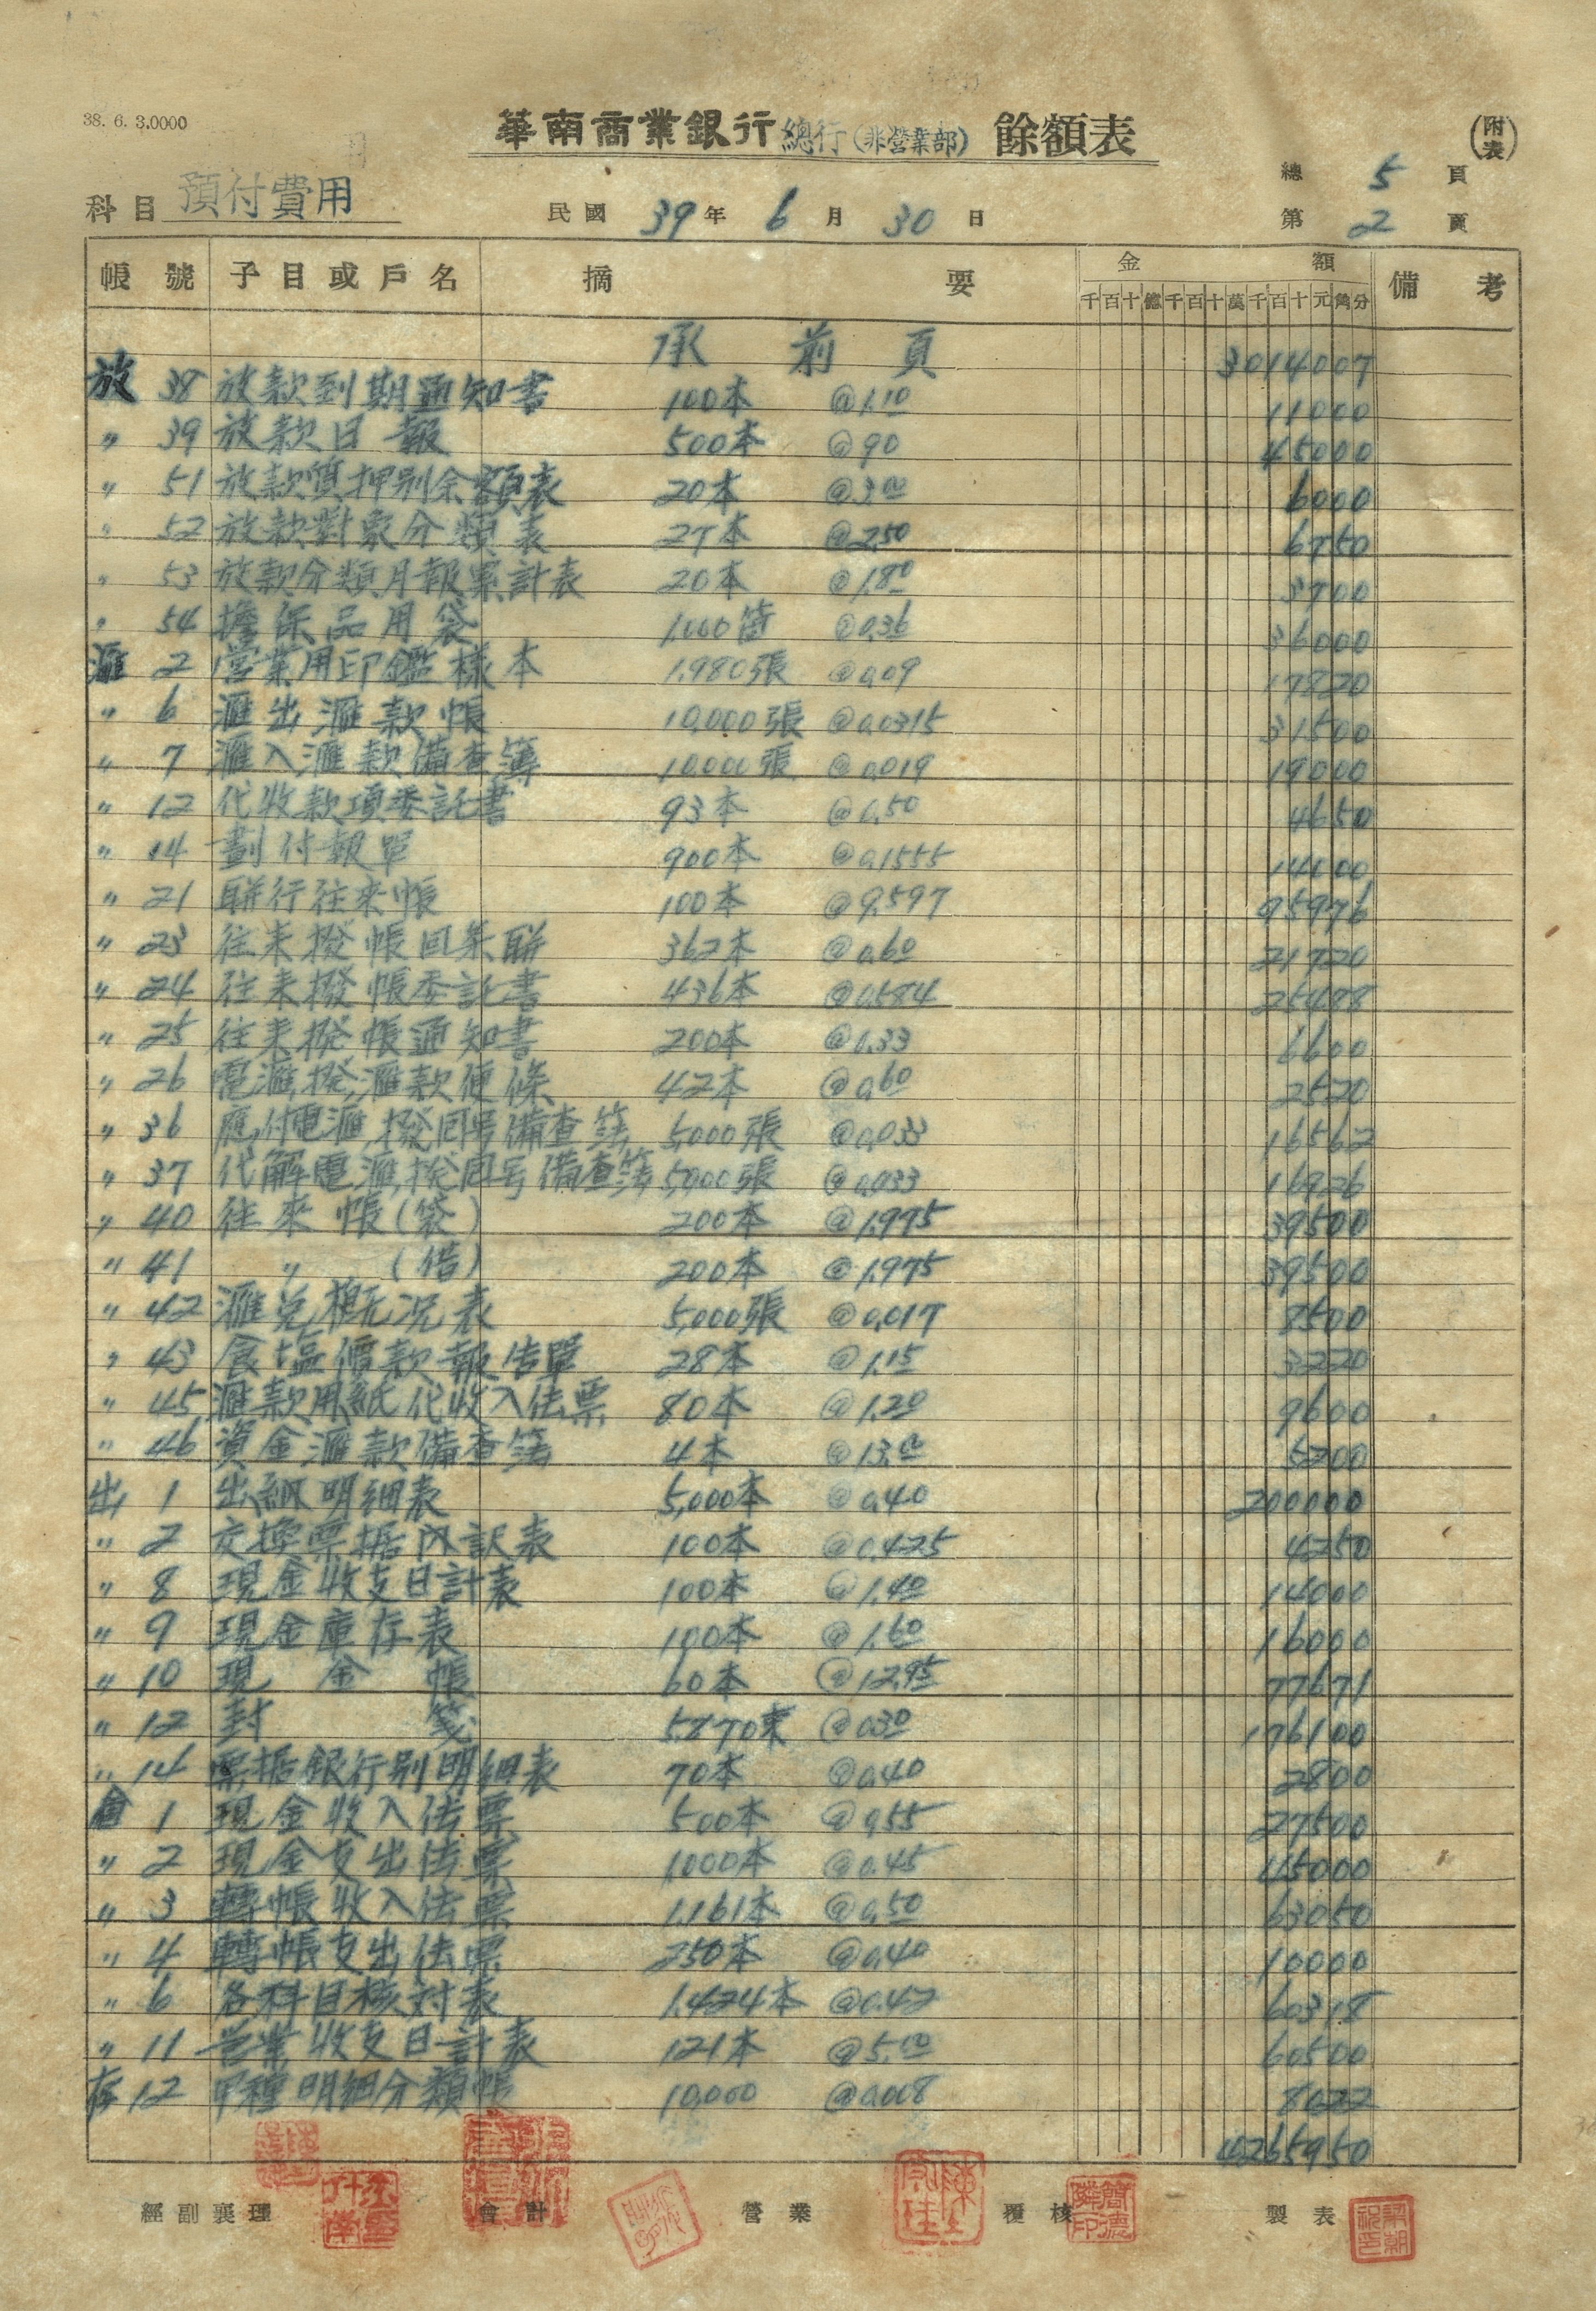 38. 6. 3.0000
華南商業銀行 總行(非營業部) 餘額表 (附表)
總 5 頁
科目 預付費用 民國 39 年 6 月 30 日 第 2 頁
帳號 子目或戶名 摘要 金額 備考
千百十億千百十萬千百十元角分
承前頁 3014007
放 38 放款到期通知書 100本 @1.10 11000
〃 39 放款日報 500本 @90 45000
〃 51 放款質押別余額表 20本 @3.00 6000
〃 52 放款對象分類表 27本 @2.50 6750
〃 53 放款分類月報累計表 20本 @1.80 3700
〃 54 擔保品用袋 1.000箇 @0.36 36000
滙 2 営業用印鑑樣本 1.980張 @0.09 17820
〃 6 滙出滙款帳 10,000張 @0.0315 31500
〃 7 滙入滙款備查簿 10.000張 @0.019 19000
〃 12 代收款項委託書 93本 @0.50 4650
〃 14 劃付報單 900本 @0.1555 14000
〃 21 聯行往來帳 100本 @9.597 95976
〃 23 往来撥帳回条聯 362本 @0.60 21720
〃 24 往来撥帳委託書 436本 @0.584 25478
〃 25 往来撥帳通知書 200本 @0.33 6600
〃 26 電滙,撥,滙款便條 42本 @0.60 2520
〃 36 應付電滙,撥同号備查簿 5,000張 @0.033 16562
〃 37 代解電滙,撥同号備查簿 5,000張 @0.033 16926
〃 40 往來帳(袋) 200本 @1.975 39500
〃 41 〃 (借) 200本 @1.975 39500
〃 42 滙兌概況表 5,000張 @0.017 8500
〃 43 食塩價款報告單 28本 @1.15 3220
〃 45 滙款用紙代收入伝票 80本 @1.20 9600
〃 46 資金滙款備查簿 4本 @13.00 5200
出 1 出納明細表 5,000本 @0.40 200000
〃 2 交換票据內訳表 100本 @0.425 4250
〃 8 現金收支日計表 100本 @1.40 14000
〃 9 現金庫存表 100本 @1.60 16000
〃 10 現金帳 60本 @12.95 77671
〃 12 封箋 5.870束 @0.30 176100
〃 14 票据銀行別明細表 70本 @0.40 2800
會 1 現金收入伝票 500本 @0.55 27500
〃 2 現金支出伝票 1.000本 @0.45 45000
〃 3 轉帳收入伝票 1.161本 @0.50 63050
〃 4 轉帳支出伝票 250本 @0.40 10000
〃 6 各科目核対表 1.424本 @0.42 60318
〃 11 営業收支日計表 121本 @5.00 60500
存 12 甲種明細分類帳 10,000 @0.008 8022
4265950
經副襄理 會計 營業 覆核 製表